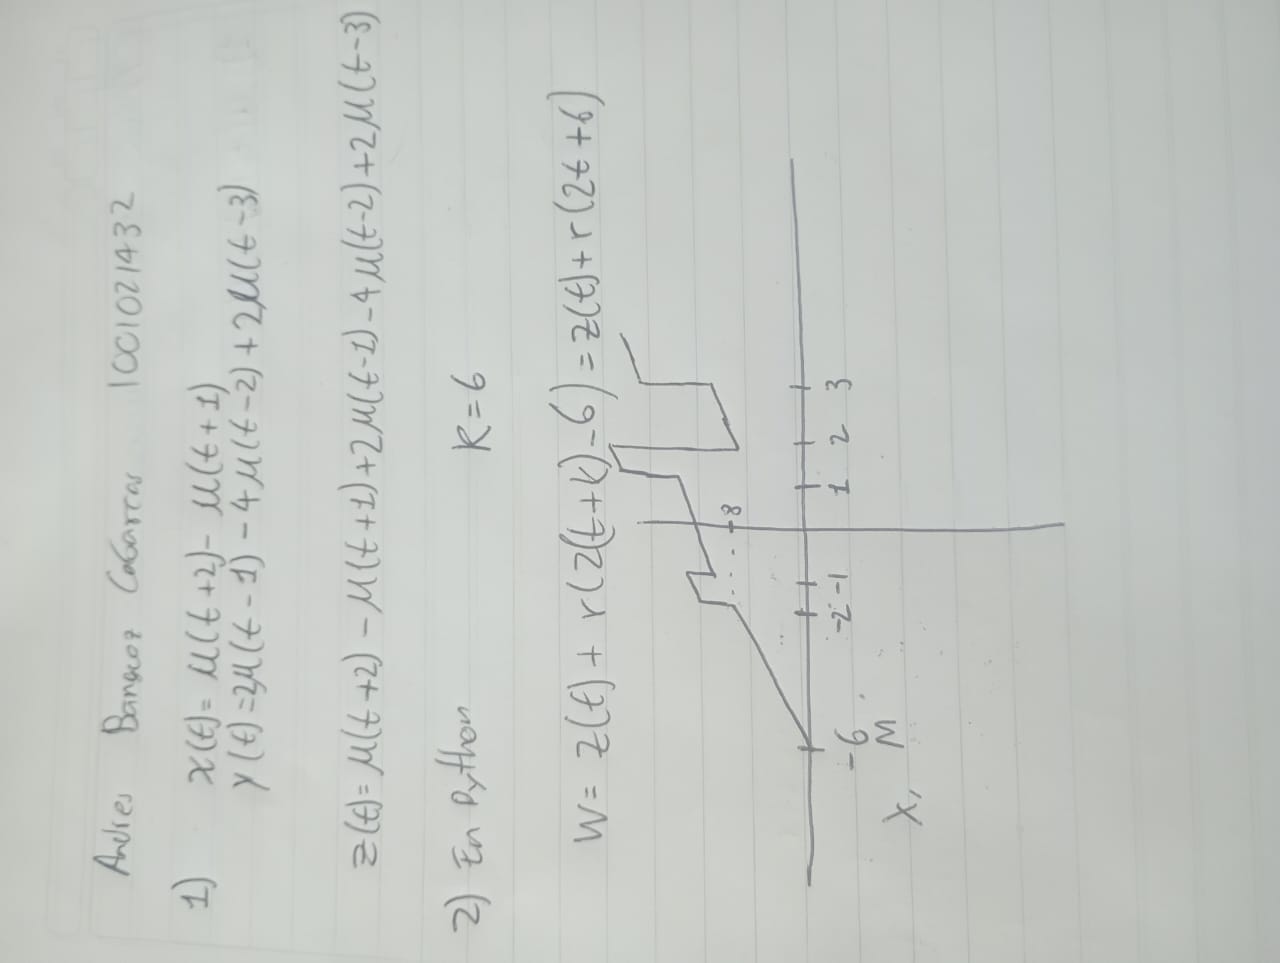 Andres 1001021432
1) x(t)= μ(t+2)- μ(t+1)
y(t)=2μ(t-1)-4μ(t-2)+2μ(t-3)
z(t)= μ(t+2)-μ(t+1)+2μ(t-1)-4μ(t-2)+2μ(t-3)
2) En Python K=6
W= z(t)+ r(2(t+k)-6)=z(t)+r(2t+6)
8
-6 -2 -1 1 2 3
X, M